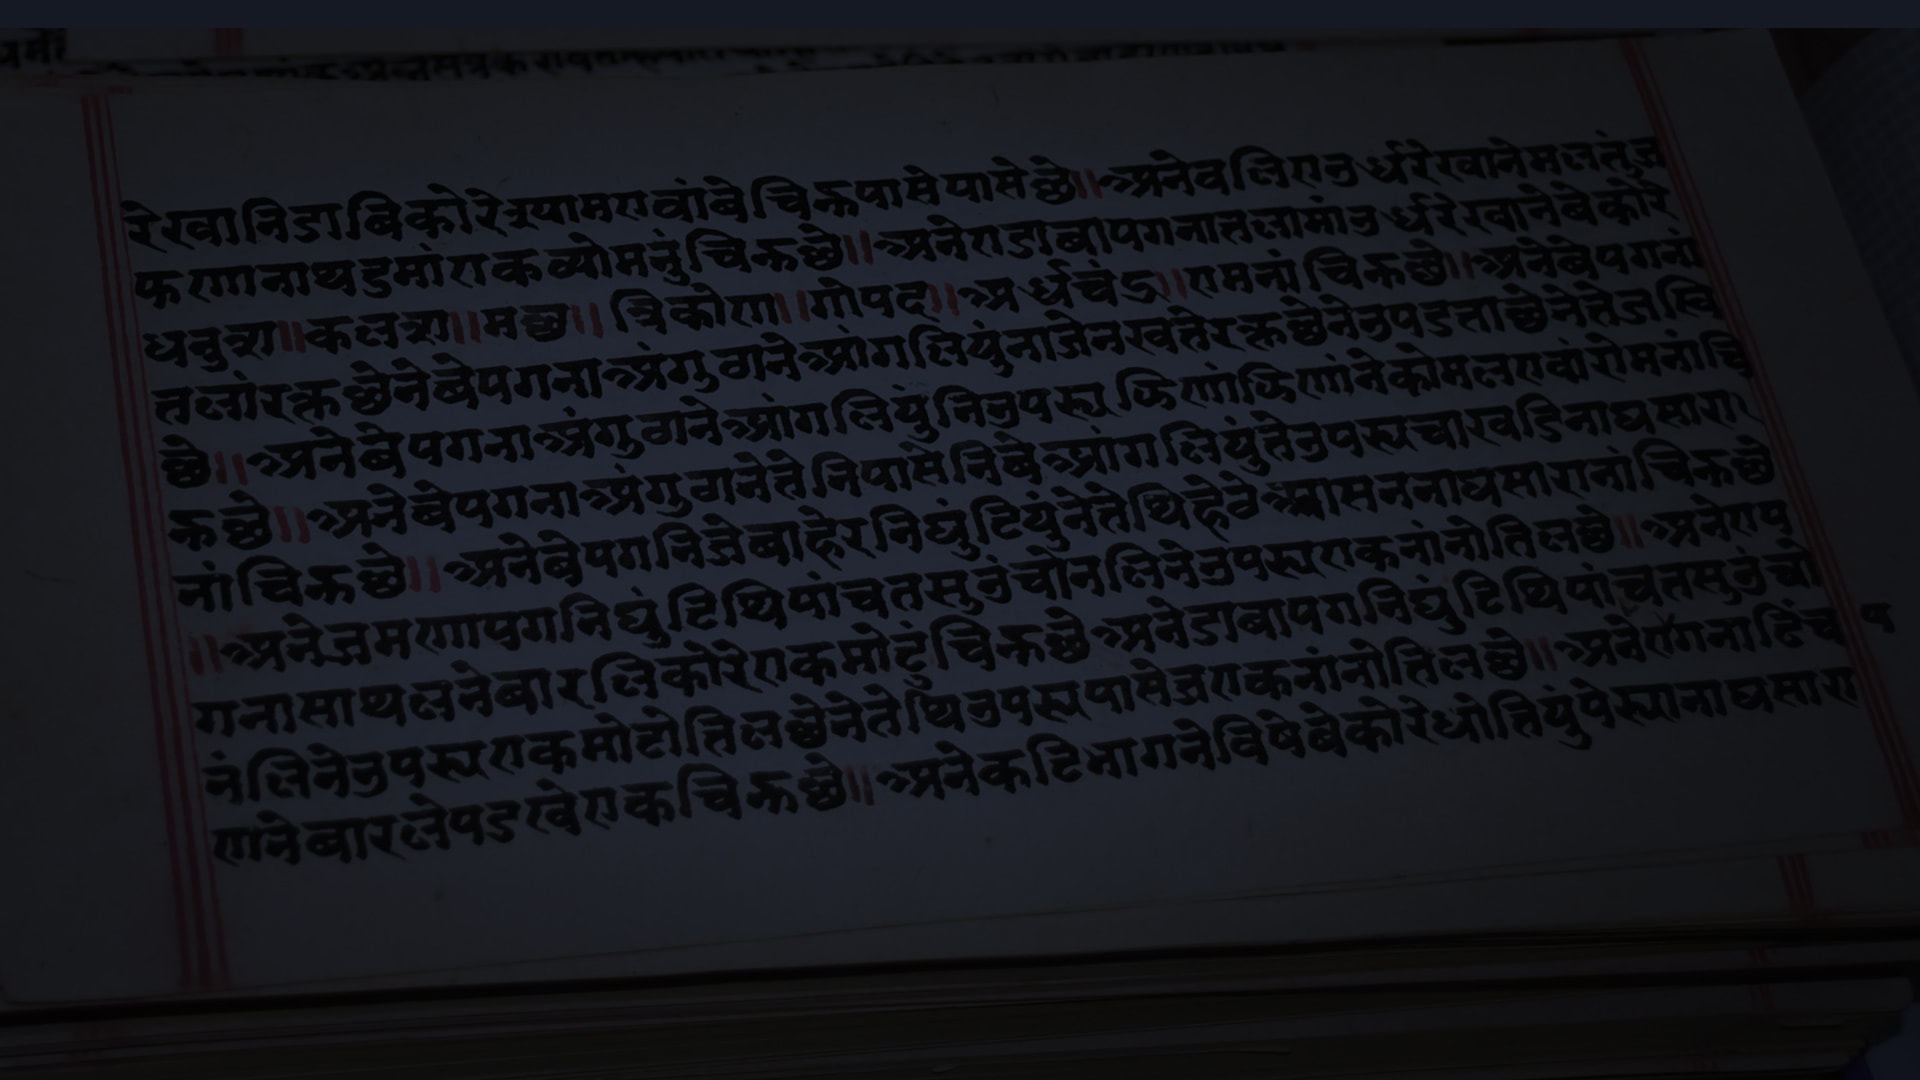 रेखानि डाबि कोरे श्यामएवां बे चिह्न पासे पासे छे॥ अने वलि एज उर्ध्वरेखाने मलतुं ज
फणाना थडमां एक व्योमनुं चिह्न छे॥ अने ए डाबा पगना तलामां उर्ध्वरेखाने बे कोरे
धनुष॥ कलश॥ मच्छ॥ त्रिकोण॥ गोपद॥ अर्धचंद्र॥ ए मनां चिह्न छे॥ अने बे पगनां
तलां रक्त छे ने बे पगना अंगुठाने आंगलियुंना जे नख ते रक्त छे ने उपडता छे ने तेजस्वि
छे॥ अने बे पगना अंगुठाने आंगलियुंनि उपरय झिणां झिणां ने कोमल एवां रोमनां चि
ह्न छे॥ अने बे पगना अंगुठाने तेनि पासेनि बे आंगलियुं ते उपरय चाखडिना घसारा
नां चिह्न छे॥ अने बे पगनि जे बाहेरनि घुंटियुं ने तेथि हेठे आसनना घसारानां चिह्न छे
॥ अने जमणा पगनि घुंटिथि पांच तसु उंचो नलिने उपरय एक नांनो तिल छे॥ अने ए प
गना साथलने बारलि कोरे एक मोटुं चिह्न छे अने डाबा पगनि घुंटिथि पांच तसु उंचो
नलिने उपरय एक मोटो तिल छे ने तेथि उपरय पासे ज एक नांनो तिल छे॥ अने एपगना ढिंच
णने बारले पडखे एक चिह्न छे॥ अने कटि भागने विषे बे कोरे धोतियुं पेरयाना घसारा